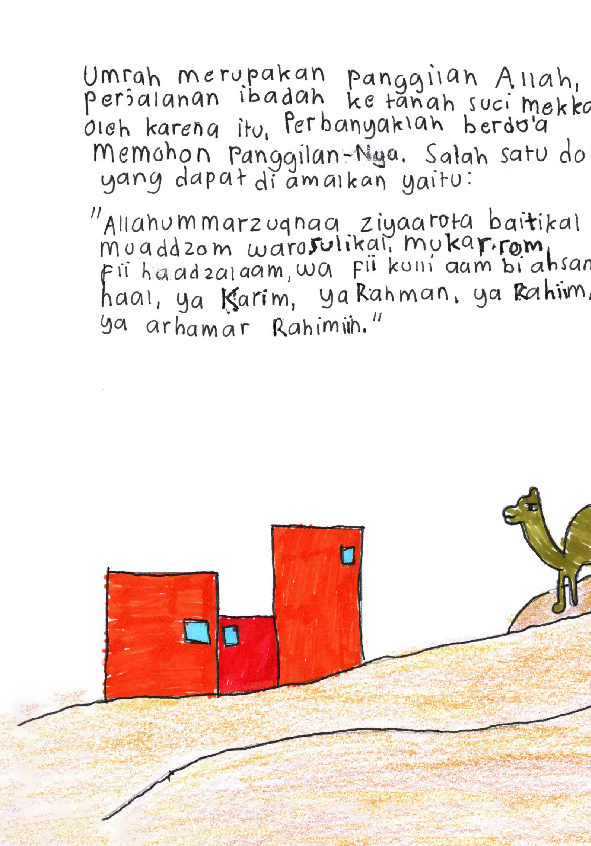 Umrah merupakan panggilan Allah,
perjalanan ibadah ke tanah suci mekka
oleh karena itu, Perbanyaklah berdo'a
memohon Panggilan-Nya. Salah satu do
yang dapat di amalkan yaitu:
"Allahummarzuqnaa ziyaarota baitikal
muaddzom warosulikal, mukarrom,
Fii haadzalaam, wa Fii kulli aam bi ahsan
haal, ya Karim, ya Rahman, ya Rahiim,
ya arhamar Rahimiin."